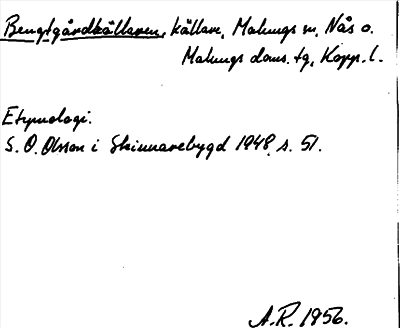 Bengtgårdkällaren, källare, Malungs sn, Nås o.
Malungs doms. tg, Kopp. l.
Etymologi.
S. O. Olsson i Skinnarebygd 1948, s. 51.
A.R. 1956.